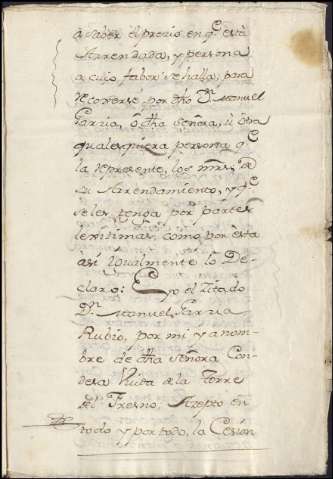 a saber el precio en q.e está
Arrendada, y persona
a cuio fabor se halla, para
recoverse por dho D.n Manuel
Garcia, ô dha Señora, û otra
qualesquiera persona q.e
la represente, los mrs. de
su Arrendamiento, y q.e
se les tenga por partes
lexitimas, como por esta
asi ygualmente lo De-
claro: E yo el Zitado
D.n Manuel Garcia
Rubio, por mi y a nom-
bre de dha Señora Con-
desa Viuda de la Torre
del Fresno; Azepto en
todo y por todo, la Cesion